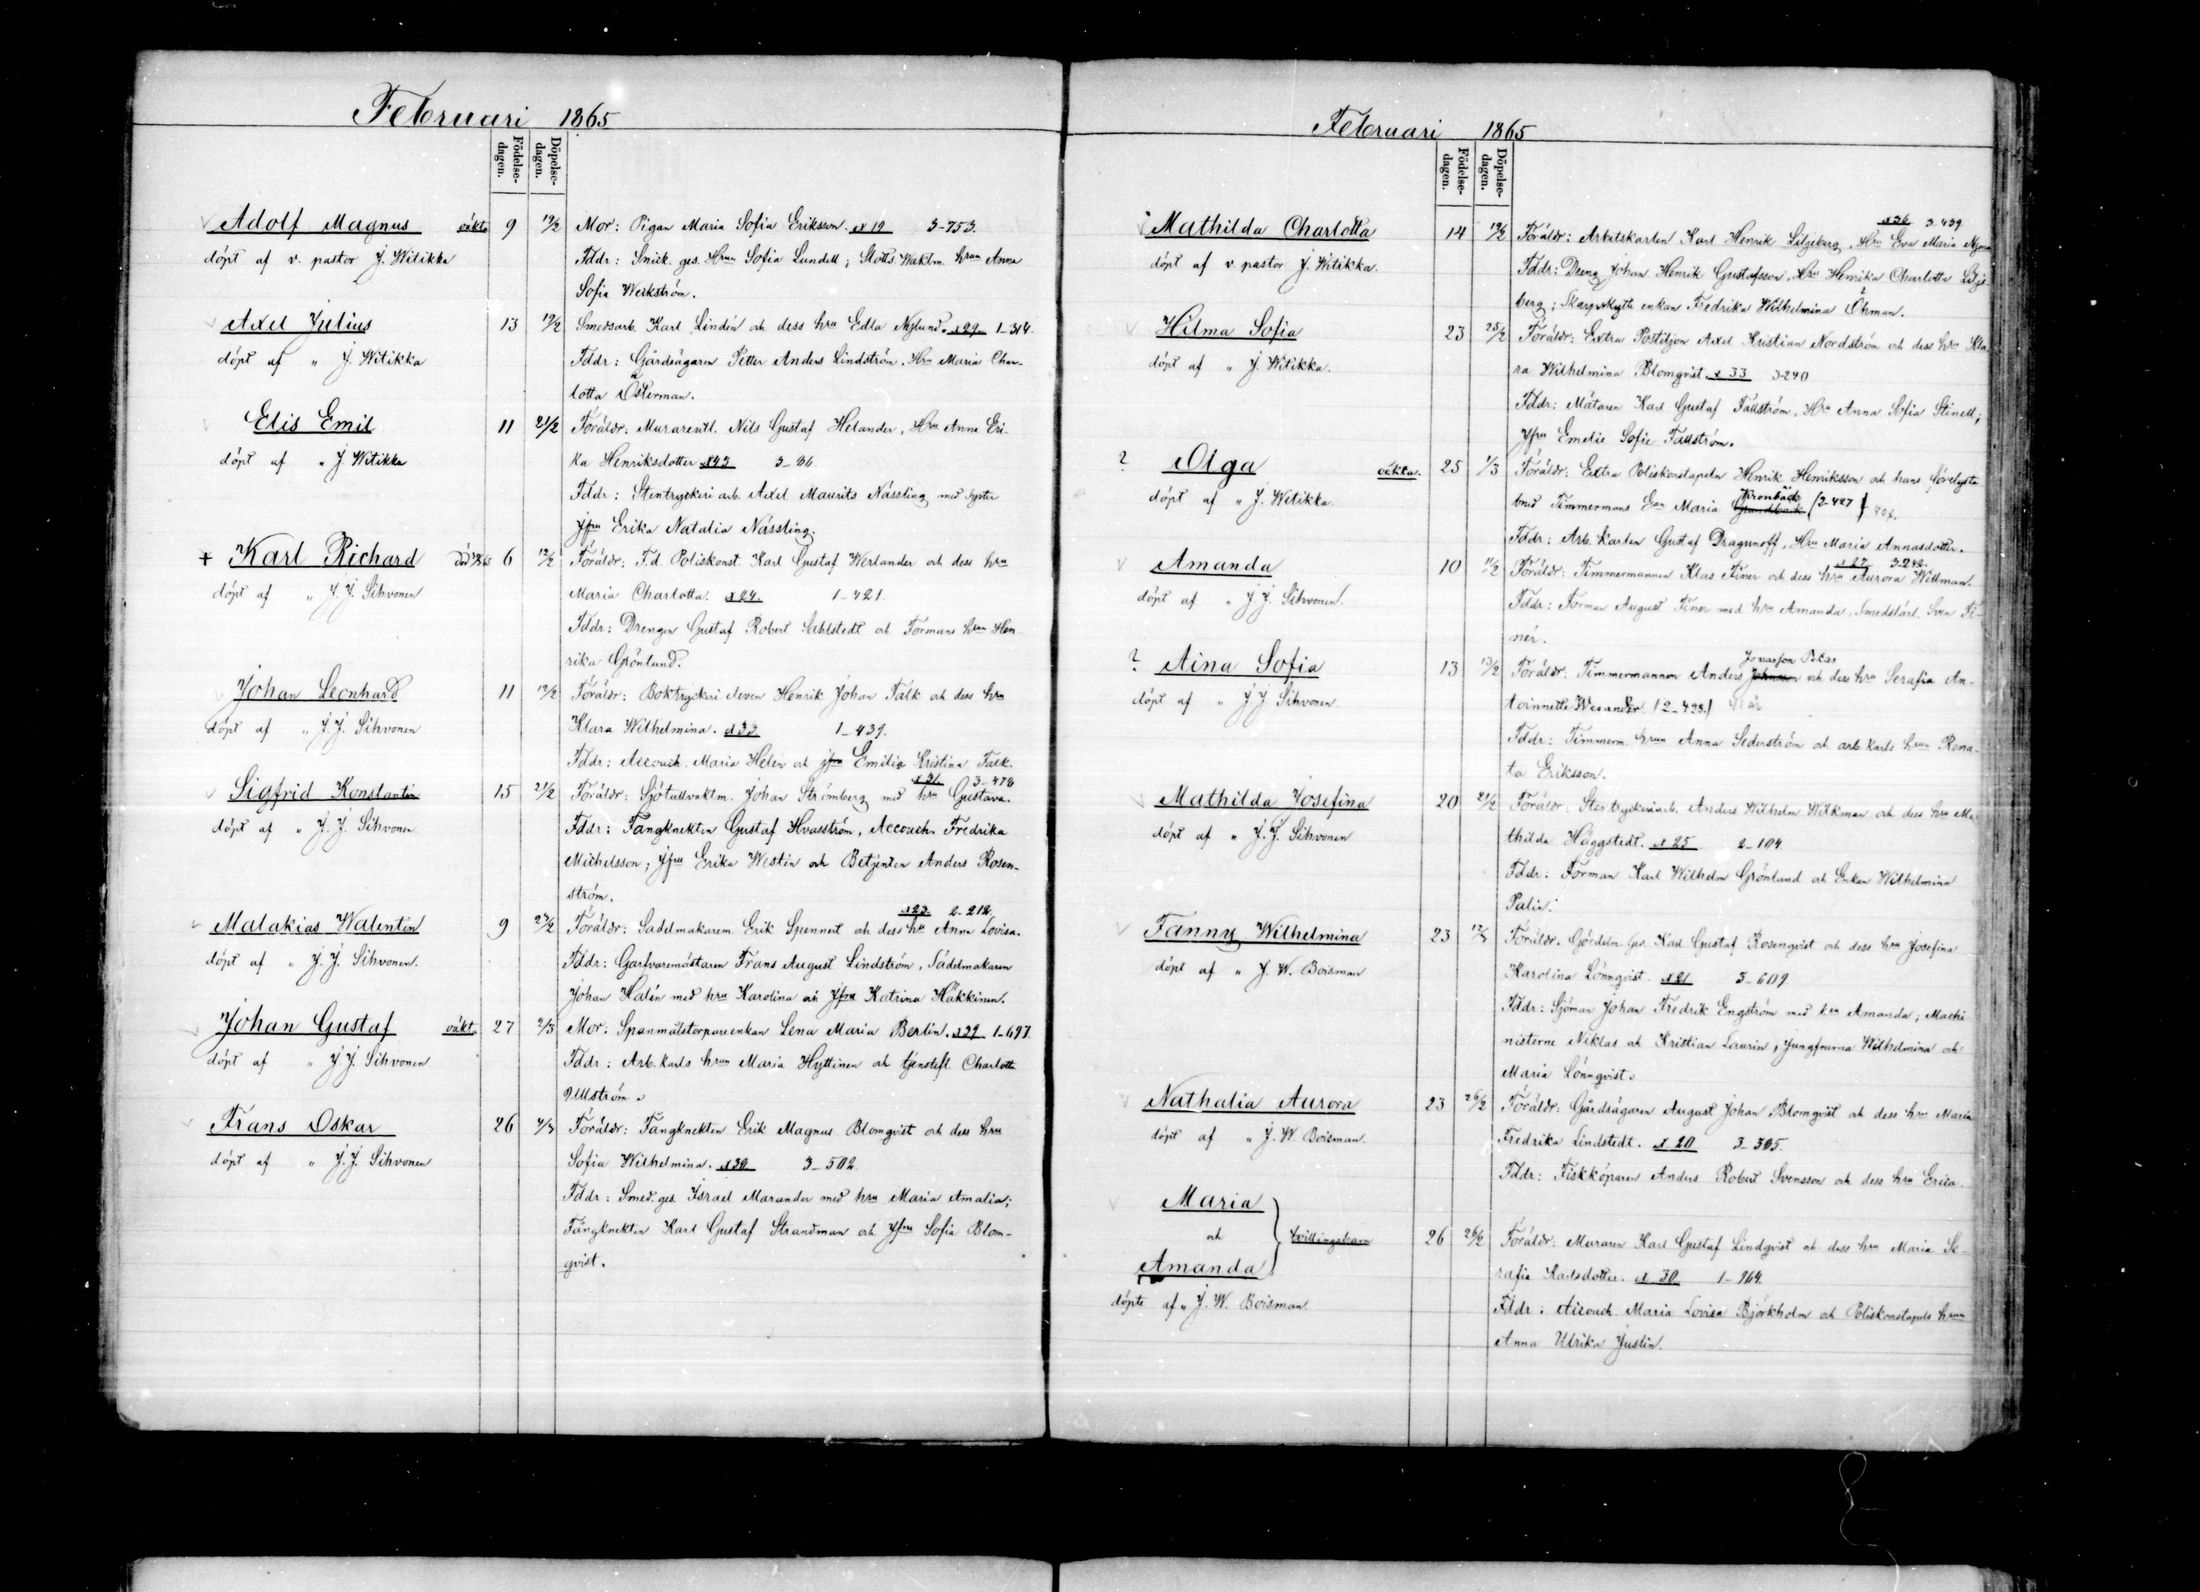 Februari 1865
Födelse-dagen.
Döpelse-dagen.
Adolf Magnus oäkt. 9 19/2 Mor: Pigan Maria Sofia Eriksson. x 19 3-753.
döpt af v. pastor J. Witikka Fddr: Snick. ges. Hrun Sofia Lundell; Slotts Waktm. hrun Anna
Sofia Werkström.
Axel Julius 13 19/2 Smedsarb. Karl Lindén och dess hru Edla Nylund. x 29. 1-314.
döpt af " J. Witikka Fddr: Gårdsägaren Petter Anders Lindström, Hru Maria Char-
lotta Österman.
Elis Emil 11 21/2 Föräldr: Murareutl. Nils Gustaf Helander, Hru Anna Eri-
döpt af " J. Witikka ka Henriksdotter x43 3-86.
Fddr: Stentryckeri arb. Axel Maurits Nässling med syster
jfru Erika Natalia Nässling.
+ Karl Richard 6 12/2 Föräldr: F.d. Poliskonst. Karl Gustaf Werlander och dess hru
döpt af " J. J. Sihvonen Maria Charlotta. x24. 1-421.
Fddr: Drengen Gustaf Robert Sahlstedt och Formans hrun Hen-
rika Grönlund.
Johan Leonhard 11 12/2 Föräldr: Boktryckeri eleven Henrik Johan Falk och dess hru
döpt af " J. J. Sihvonen Klara Wilhelmina. x33 1-439.
Fddr: Accouch. Maria Helén och jfru Emilia Kristina Falk.
x 31. 3-476
Sigfrid Konstantin 15 21/2 Föräldr: Sjötullvaktm. Johan Strömberg med hru Gustava.
döpt af " J. J. Sihvonen. Fddr: Fångknekten Gustaf Hvasström, Accouch. Fredrika
Michelsson; jfru Erika Westin och Betjenten Anders Rosen-
ström.
x23. 2-212.
Malakias Walentin 9 27/2 Föräldr: Sadelmakaren Erik Spennert och dess hru Anna Lovisa.
döpt af " J. J. Sihvonen. Fddr: Garfvaremästaren Frans August Lindström, Sadelmakaren
Johan Halén med hru Karolina och jfru Katrina Häkkinen.
Johan Gustaf oäkt. 27 2/3 Mor: Spanmålstorpareenkan Lena Maria Berlin. x39 1-697.
döpt af " J. J. Sihvonen Fddr: Arb. karls hrun Maria Hyttinen och tjenstefl. Charlotta
Ullström.
Frans Oskar 26 4/3 Föräldr: Fångknekten Erik Magnus Blomqvist och dess hru
döpt af " J. J. Sihvonen Sofia Wilhelmina. x32 3-502.
Fddr: Smed. ges. Israel Marander med hru Maria Amalia;
Fångknekten Karl Gustaf Strandman och jfru Sofia Blom-
qvist.
Februari 1865
Födelse-dagen.
Döpelse-dagen.
x36 3-439
Mathilda Charlotta 14 19/2 Föräldr: Arbetskarlen Karl Henrik Liljeberg, Hru Eva Maria
döpt af v. pastor J. Witikka. Fddr: Dreng Johan Henrik Gustafsson, Hru Henrika Charlotta Lilje-
berg; Skarpskytte enkan Fredrika Wilhelmina Öhman.
Hilma Sofia 23 25/2 Föräldr: Extra Postiljon Axel Kristian Nordström och dess hru Kla-
döpt af " J. Witikka. ra Wilhelmina Blomqvist. x 33 3-240
Fddr: Mätaren Karl Gustaf Fallström, Hru Anna Sofia Stinell;
jfru Emelie Sofie Fallström.
? Olga oäkta. 25 1/3 Föräldr: Extra Poliskonstapeln Henrik Henriksson och hans förelysta
döpt af " J. Witikka brud Timmermans E:an Maria Grundbäck Kronbäck (2-427)
Fddr: Arb. karlen Gustaf Dragunoff, Hru Maria Annasdotter.
x 27 3-242.
Amanda 10 11/2 Föräldr: Timmermannen Klas Finer och dess hru Aurora Willman.
döpt af " J. J. Sihvonen. Fddr: Forman August Finer med hru Amanda, Smedslärl. Sven Fi-
nér.
Jonasson Petas
? Aina Sofia 13 13/2 Föräldr: Timmermannen Anders Johnsson och dess hru Serafia An-
döpt af " J J Sihvonen toinnette Wesander. (2-428.)
Fddr: Timmerm. hrun Anna Sederström och arb. karls hrun Rena-
ta Eriksson.
Mathilda Josefina 20 21/2 Föräldr: Stentryckeriarb. Anders Wilhelm Wilkman och dess hru Ma-
döpt af " J. J. Sihvonen thilda Häggstedt. x 25 2-104
Fddr: Forman Karl Wilhelm Grönlund och Enkan Wilhelmina
Palin.
Fanny Wilhelmina 23 12/3 Föräldr. Gördelm. Ges. Karl Gustaf Rosenqvist och dess hru Josefina
döpt af " J. W. Boisman Karolina Lönnqvist. x21 3-609
Fddr: Sjöman Johan Fredrik Engström med hru Amanda; Machi-
nisterne Niklas och Kristian Laurin, Jungfrurna Wilhelmina och
Maria Lönnqvist.
Nathalia Aurora 23 26/2 Föräldr: Gårdsägaren August Johan Blomqvist och dess hru Maria
döpt af " J. W. Boisman. Fredrika Lindstedt. x 20 3-305.
Fddr: Fiskköparen Anders Robert Svensson och dess hru Erica.
Maria
och tvillingebarn 26 26/2 Föräldr: Muraren Karl Gustaf Lindqvist och dess hru Maria Se-
Amanda rafia Karlsdotter. x 30 1-964.
döpte af " J. W. Boisman. Fddr: Accouch. Maria Lovisa Björkholm och Poliskonstapels hrun
Anna Ulrika Justin.